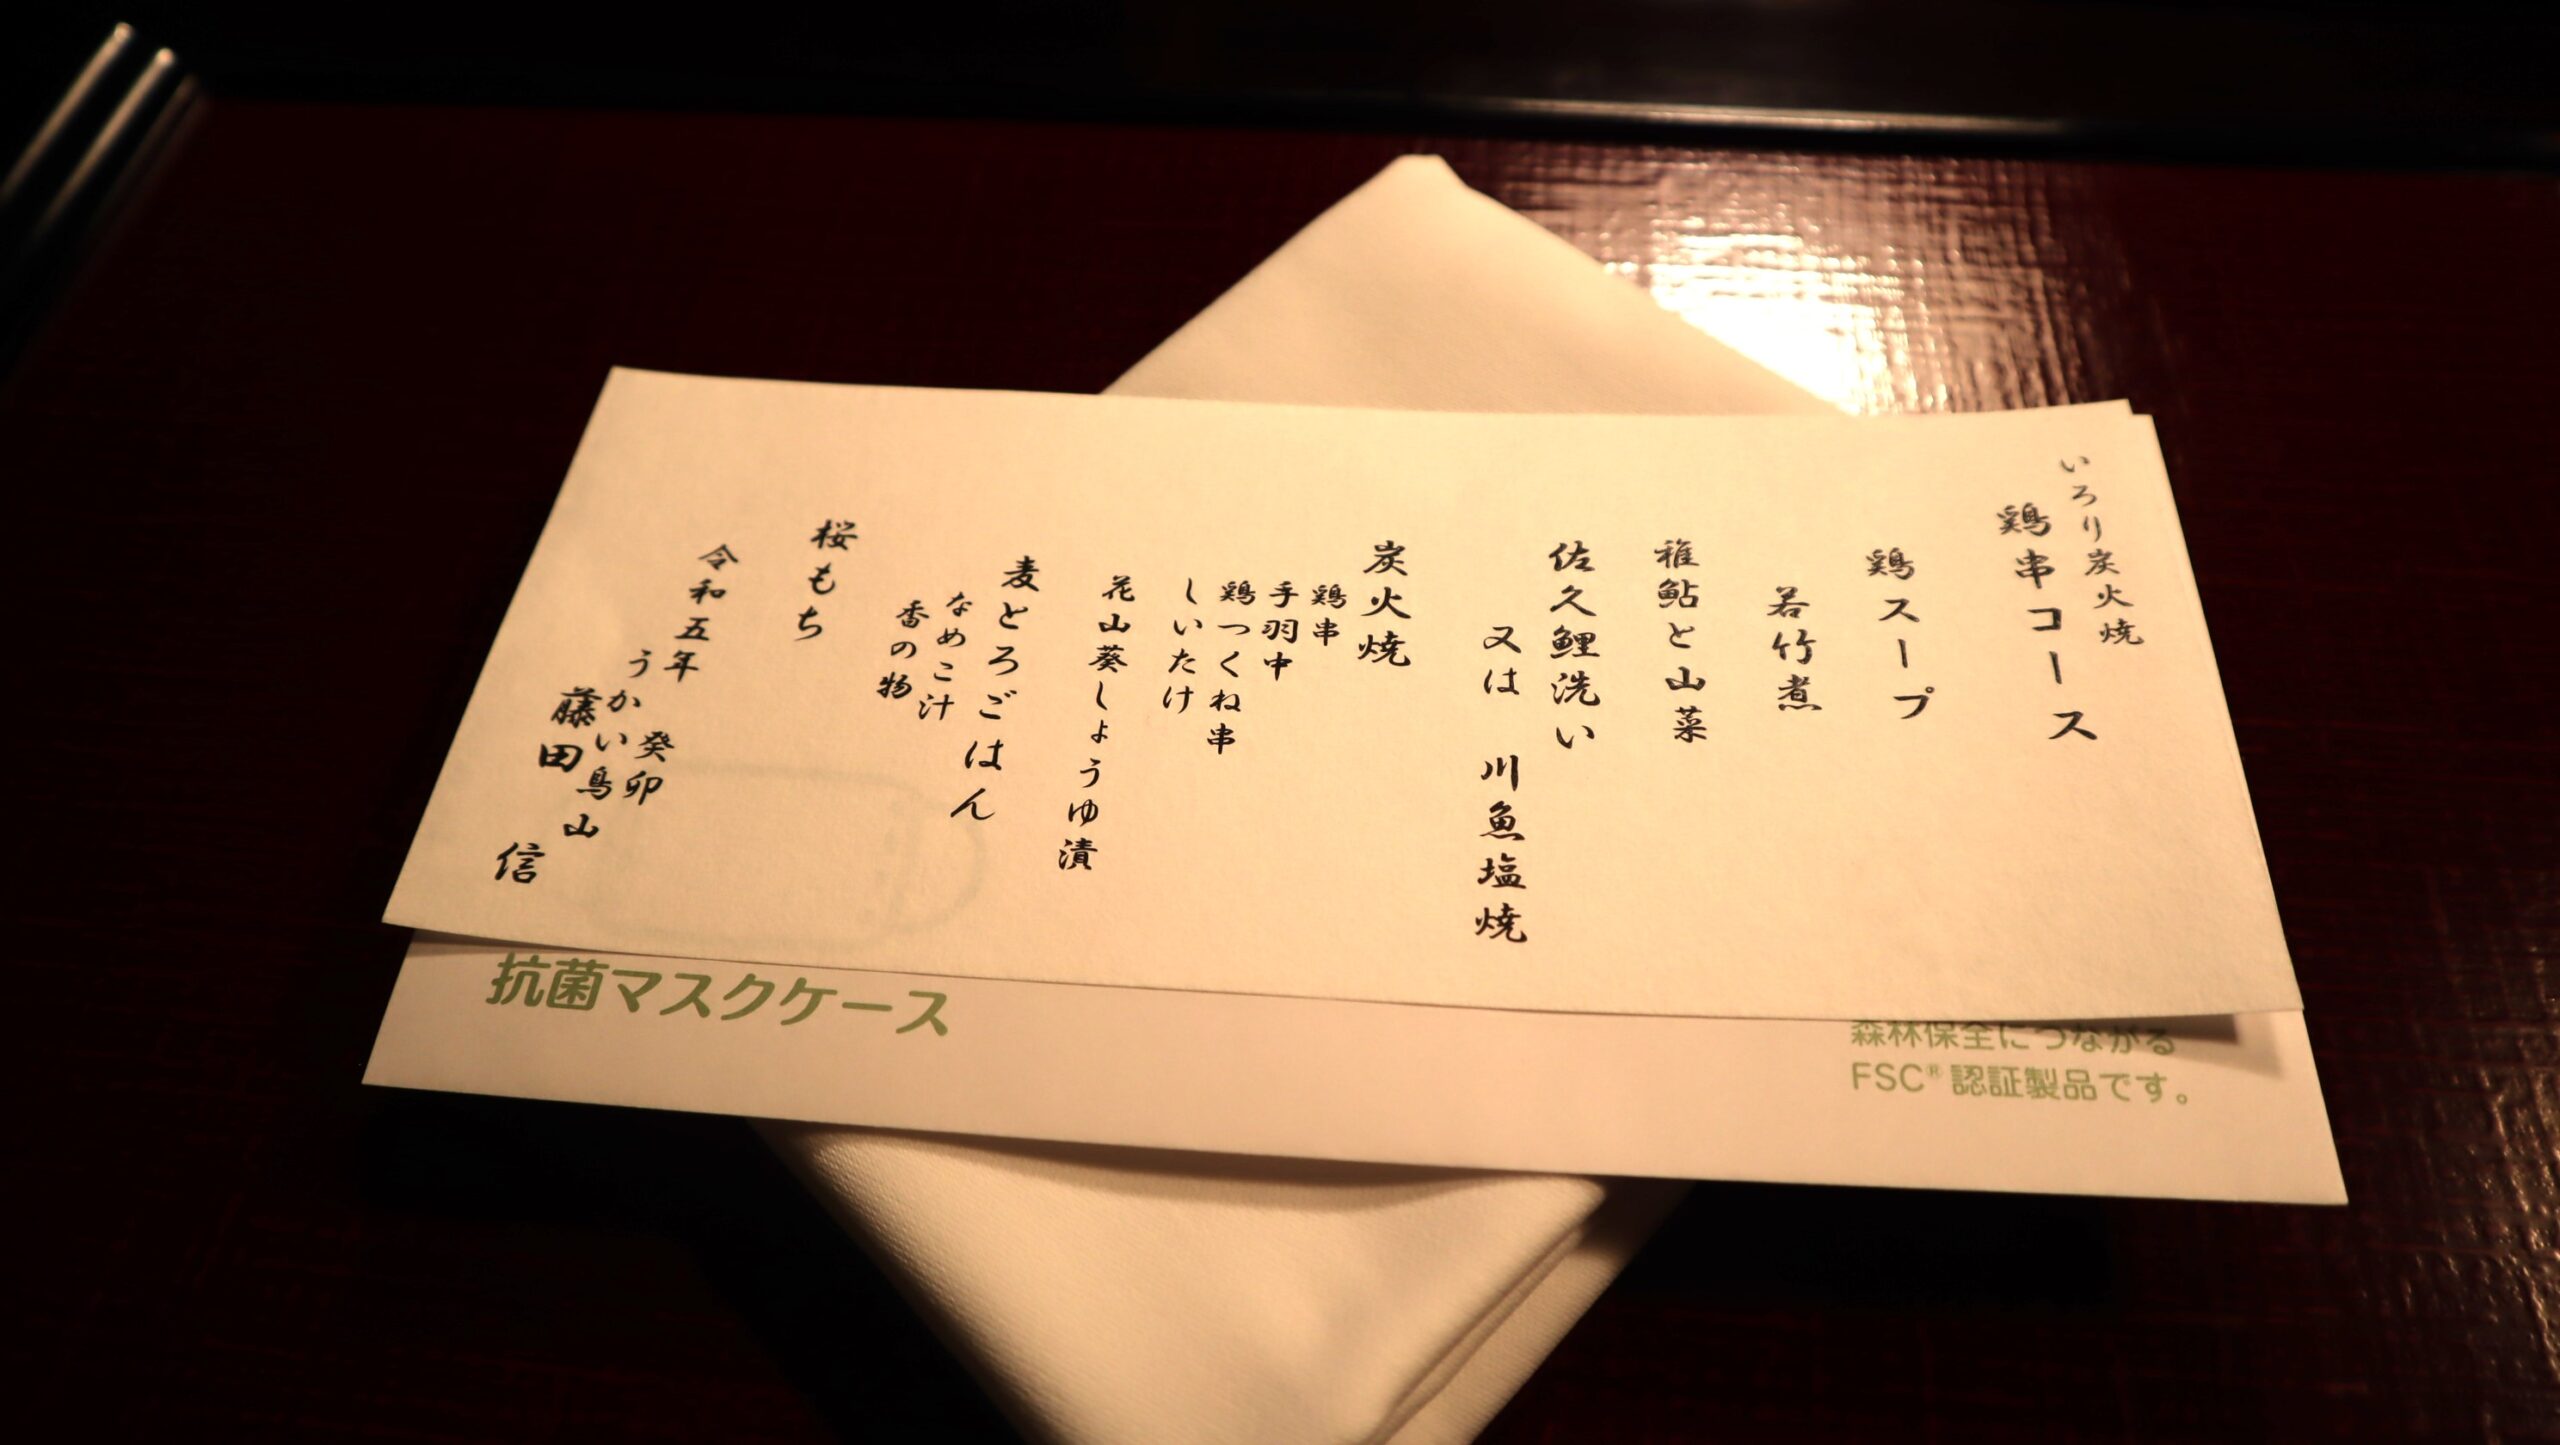 いろり炭火焼
鶏串コース
鶏スープ
若竹煮
稚鮎と山菜
佐久鯉洗い
又は 川魚塩焼
炭火焼
鶏串
手羽中
鶏つくね串
しいたけ
花山葵しょうゆ漬
麦とろごはん
なめこ汁
香の物
桜もち
令和五年 癸卯
うかい鳥山
藤田 信
抗菌マスクケース
森林保全につながる
FSC® 認証製品です。